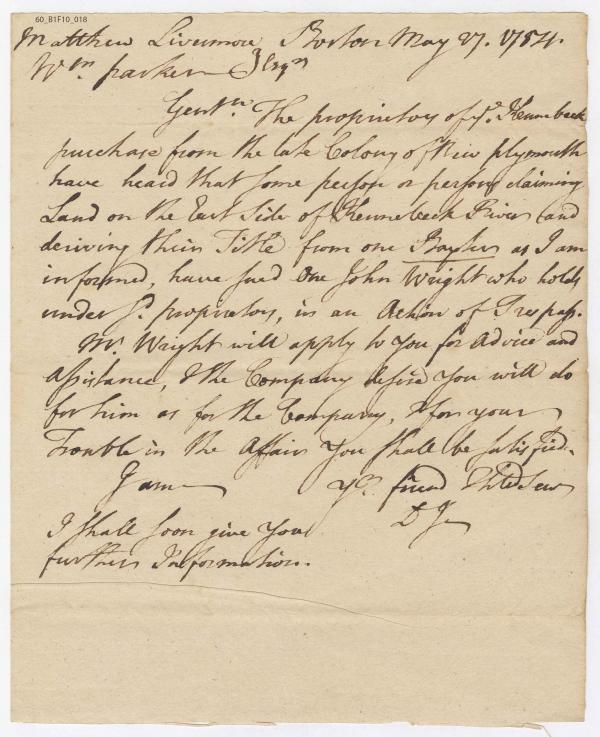 60_B1F10_018
Matthew Livermore Boston May 27. 1754.
Wm. parker Esqrs
Gentn. The proprietors of ye. Kennebeck
purchase from the late Colony of New plymouth
have heard that some person or persons claiming
Land on the East Side of Kennebeck River and
deriving their Title from one as I am
informed, have sued One John Wright who holds
under sd. proprietors, in an Action of Trespass.
Mr. Wright will apply to You for Advice and
Assistance, & the Company desire You will do
for him as for the Company, & for your
Trouble in the Affair You shall be satisfied.
I am Yr. friend & hble Serv
D J
I shall soon give You
further Information.